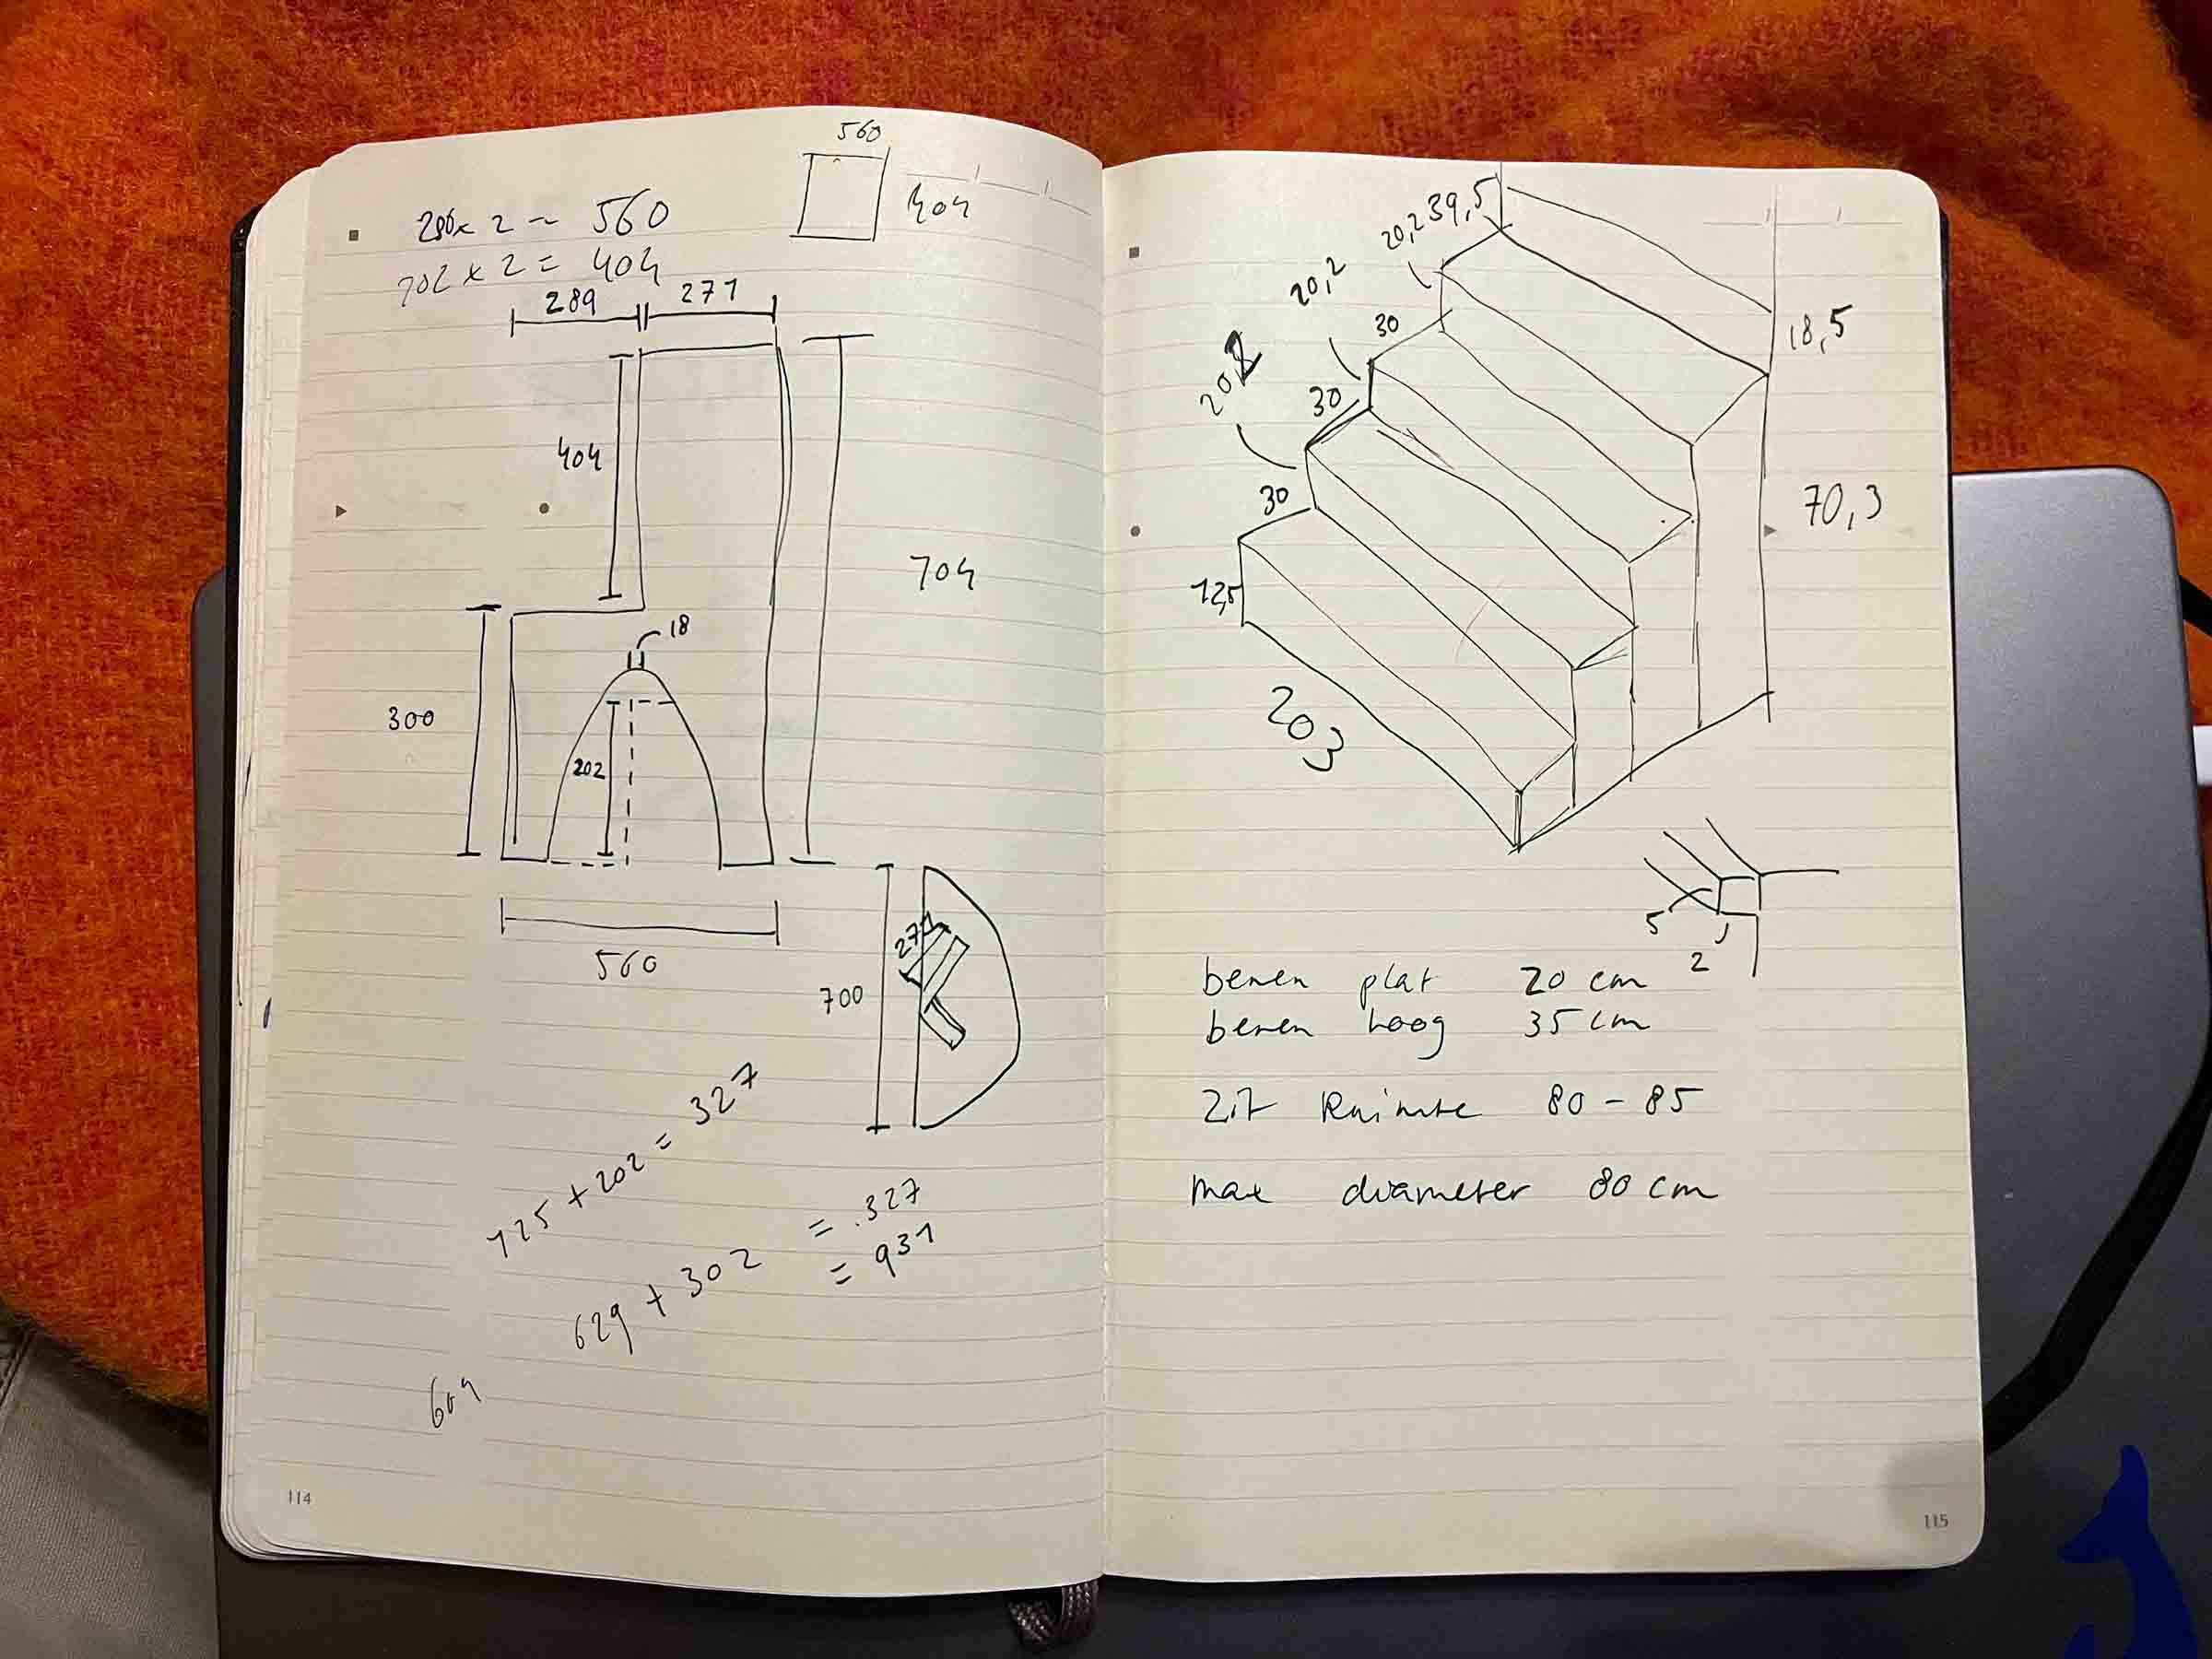 560
404
280 x 2 = 560
202 x 2 = 404
289
271
404
704
18
300
202
560
271
700
125 + 202 = 327
= 327
629 + 302 = 931
604
114
39,5
20,2
20,2
30
18,5
30
202
30
70,3
12,5
203
5
2
benen plat 20 cm
benen hoog 35 cm
Zit Ruimte 80 - 85
max diameter 80 cm
115